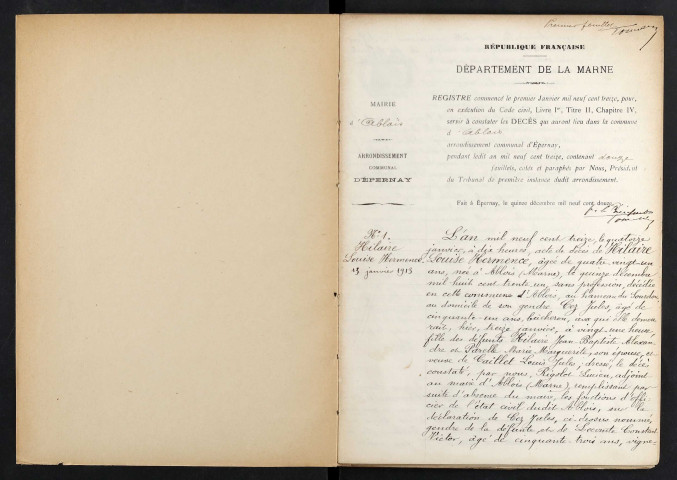 Premier feuillet
RÉPUBLIQUE FRANÇAISE
DÉPARTEMENT DE LA MARNE
MAIRIE
d'Ablois
ARRONDISSEMENT
COMMUNAL
D'ÉPERNAY
REGISTRE commencé le premier Janvier mil neuf cent treize, pour,
en exécution du Code civil, Livre Ier, Titre II, Chapitre IV,
servir à constater les DÉCÈS qui auront lieu dans la commune
d'Ablois
arrondissement communal d'Épernay,
pendant ledit an mil neuf cent treize, contenant douze
feuillets, cotés et paraphés par Nous, Président
du Tribunal de première instance dudit arrondissement.
Fait à Épernay, le quinze décembre mil neuf cent douze.
N° 1.
Hilaire
Louise Hermence
13 janvier 1913
L'an mil neuf cent treize, le quatorze
janvier, à dix heures, acte de décès de Hilaire
Louise Hermence, âgée de quatre-vingt-un
ans, née à Ablois (Marne), le quinze décembre
mil huit cent trente un, sans profession, décédée
en cette commune d'Ablois, au hameau du Sourdon
au domicile de son gendre Cez Jules, âgé de
cinquante-un ans, bûcheron, avec qui elle demeu
rait, hier, treize janvier, à vingt-une heure
fille des défunts Hilaire Jean Baptiste Alexan
dre et Marie Marguerite, son épouse, et
veuve de Caillet Louis Jules; dressé, le décès
constaté, par nous, Rigolot Lucien, adjoint
au maire d'Ablois (Marne), remplissant par
suite d'absence du maire, les fonctions d'offi
cier de l'état civil dudit Ablois, sur la
déclaration de Cez Jules, ci-dessus nommé,
gendre de la défunte, et de Lecomte Constant
Victor, âgé de cinquante-trois ans, vigne-